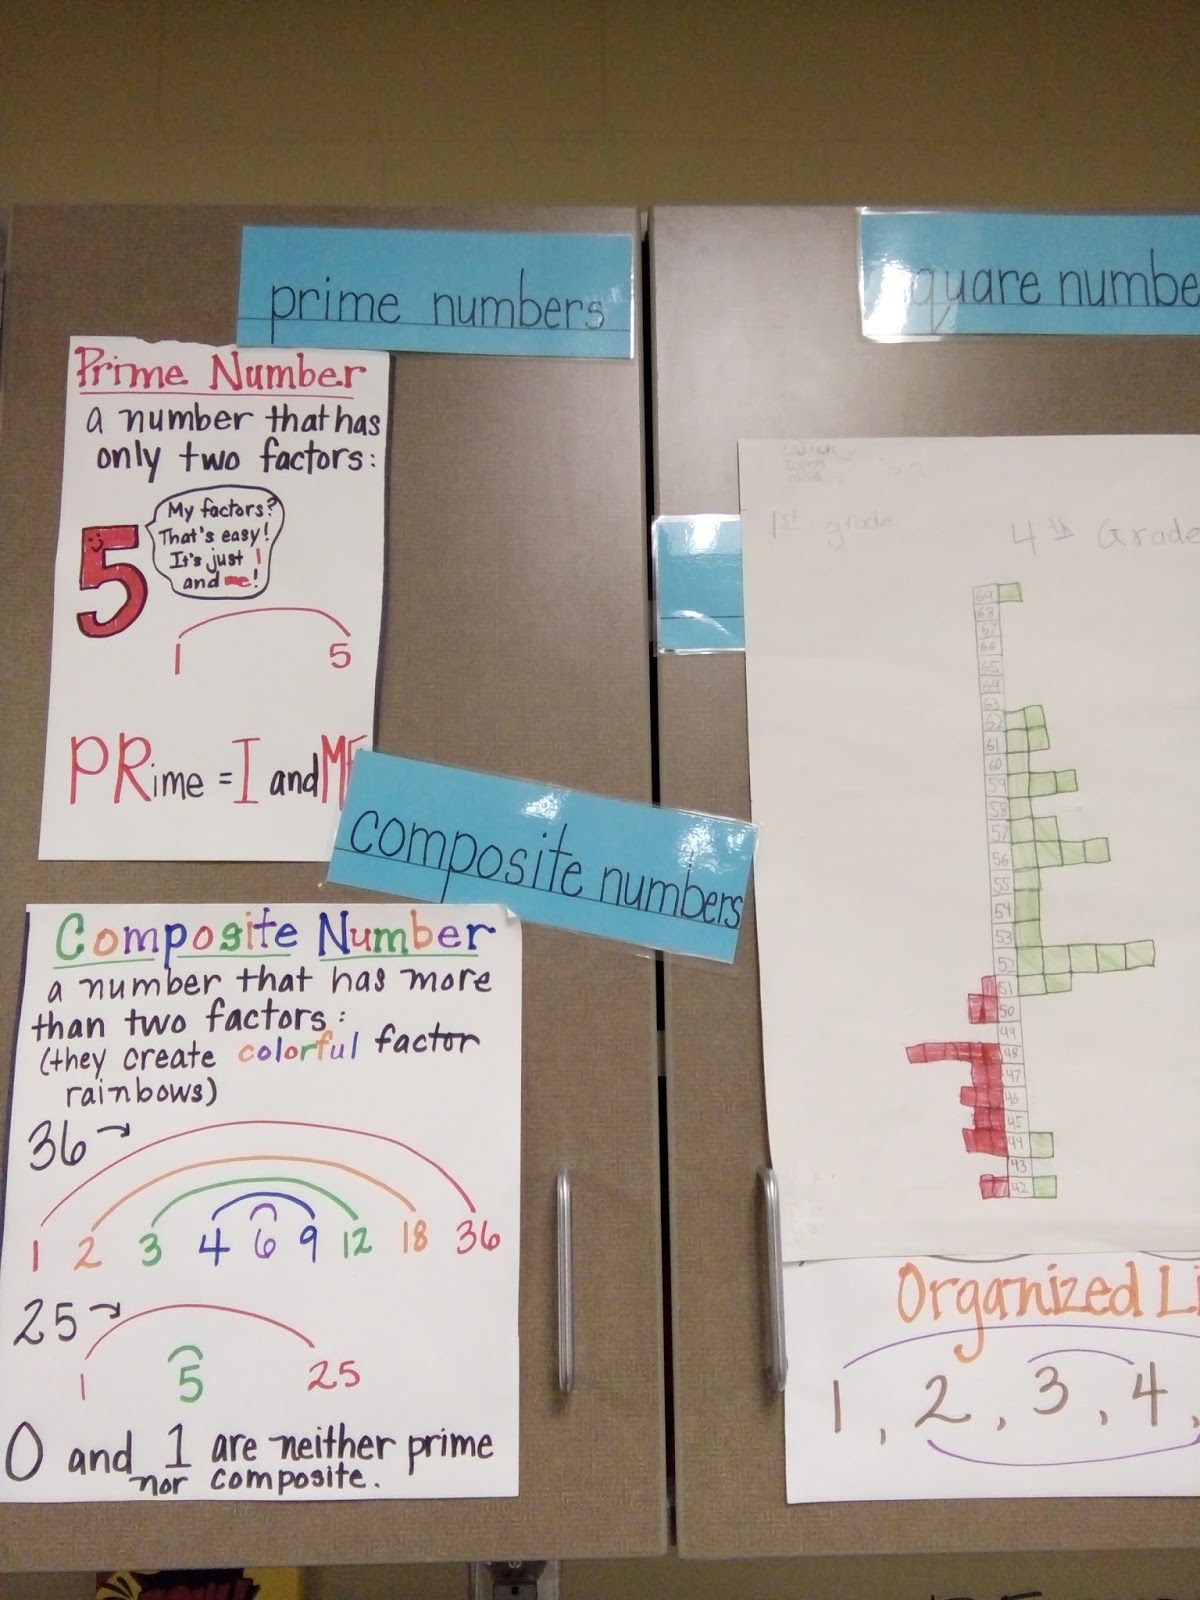 prime numbers
Prime Number
a number that has
only two factors:
5
My factors?
That's easy!
It's just 1
and me!
1 5
PRime = I and ME
composite numbers
Composite Number
a number that has more
than two factors:
(they create colorful factor
rainbows)
36
1 2 3 4 6 9 12 18 36
25
1 5 25
0 and 1 are neither prime
nor composite.
quare numbe
1st grade
4th Grade
69
68
67
66
65
64
63
62
61
60
59
58
57
56
55
54
53
52
51
50
49
48
47
46
45
44
43
42
Organized Li
1, 2, 3, 4,